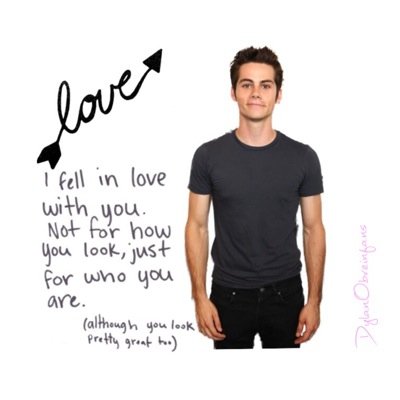 love
I fell in love
with you.
Not for how
you look, just
for who you
are.
(although you look
pretty great too)
DylanObreinfans